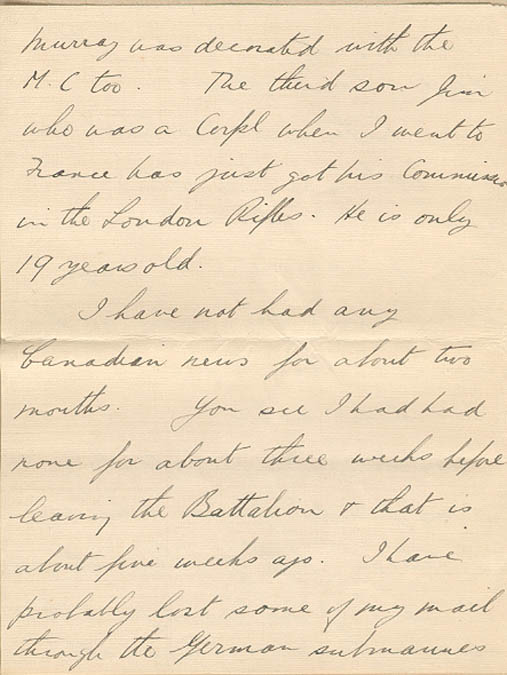 Murray was decorated with the
M.C too. The third son Jim
who was a Corpl when I went to
France has just got his Commission
in the London Rifles. He is only
19 years old.
I have not had any
Canadian news for about two
months. You see I had had
none for about three weeks before
leaving the Battalion & that is
about five weeks ago. I have
probably lost some of my mail
through the German submarines